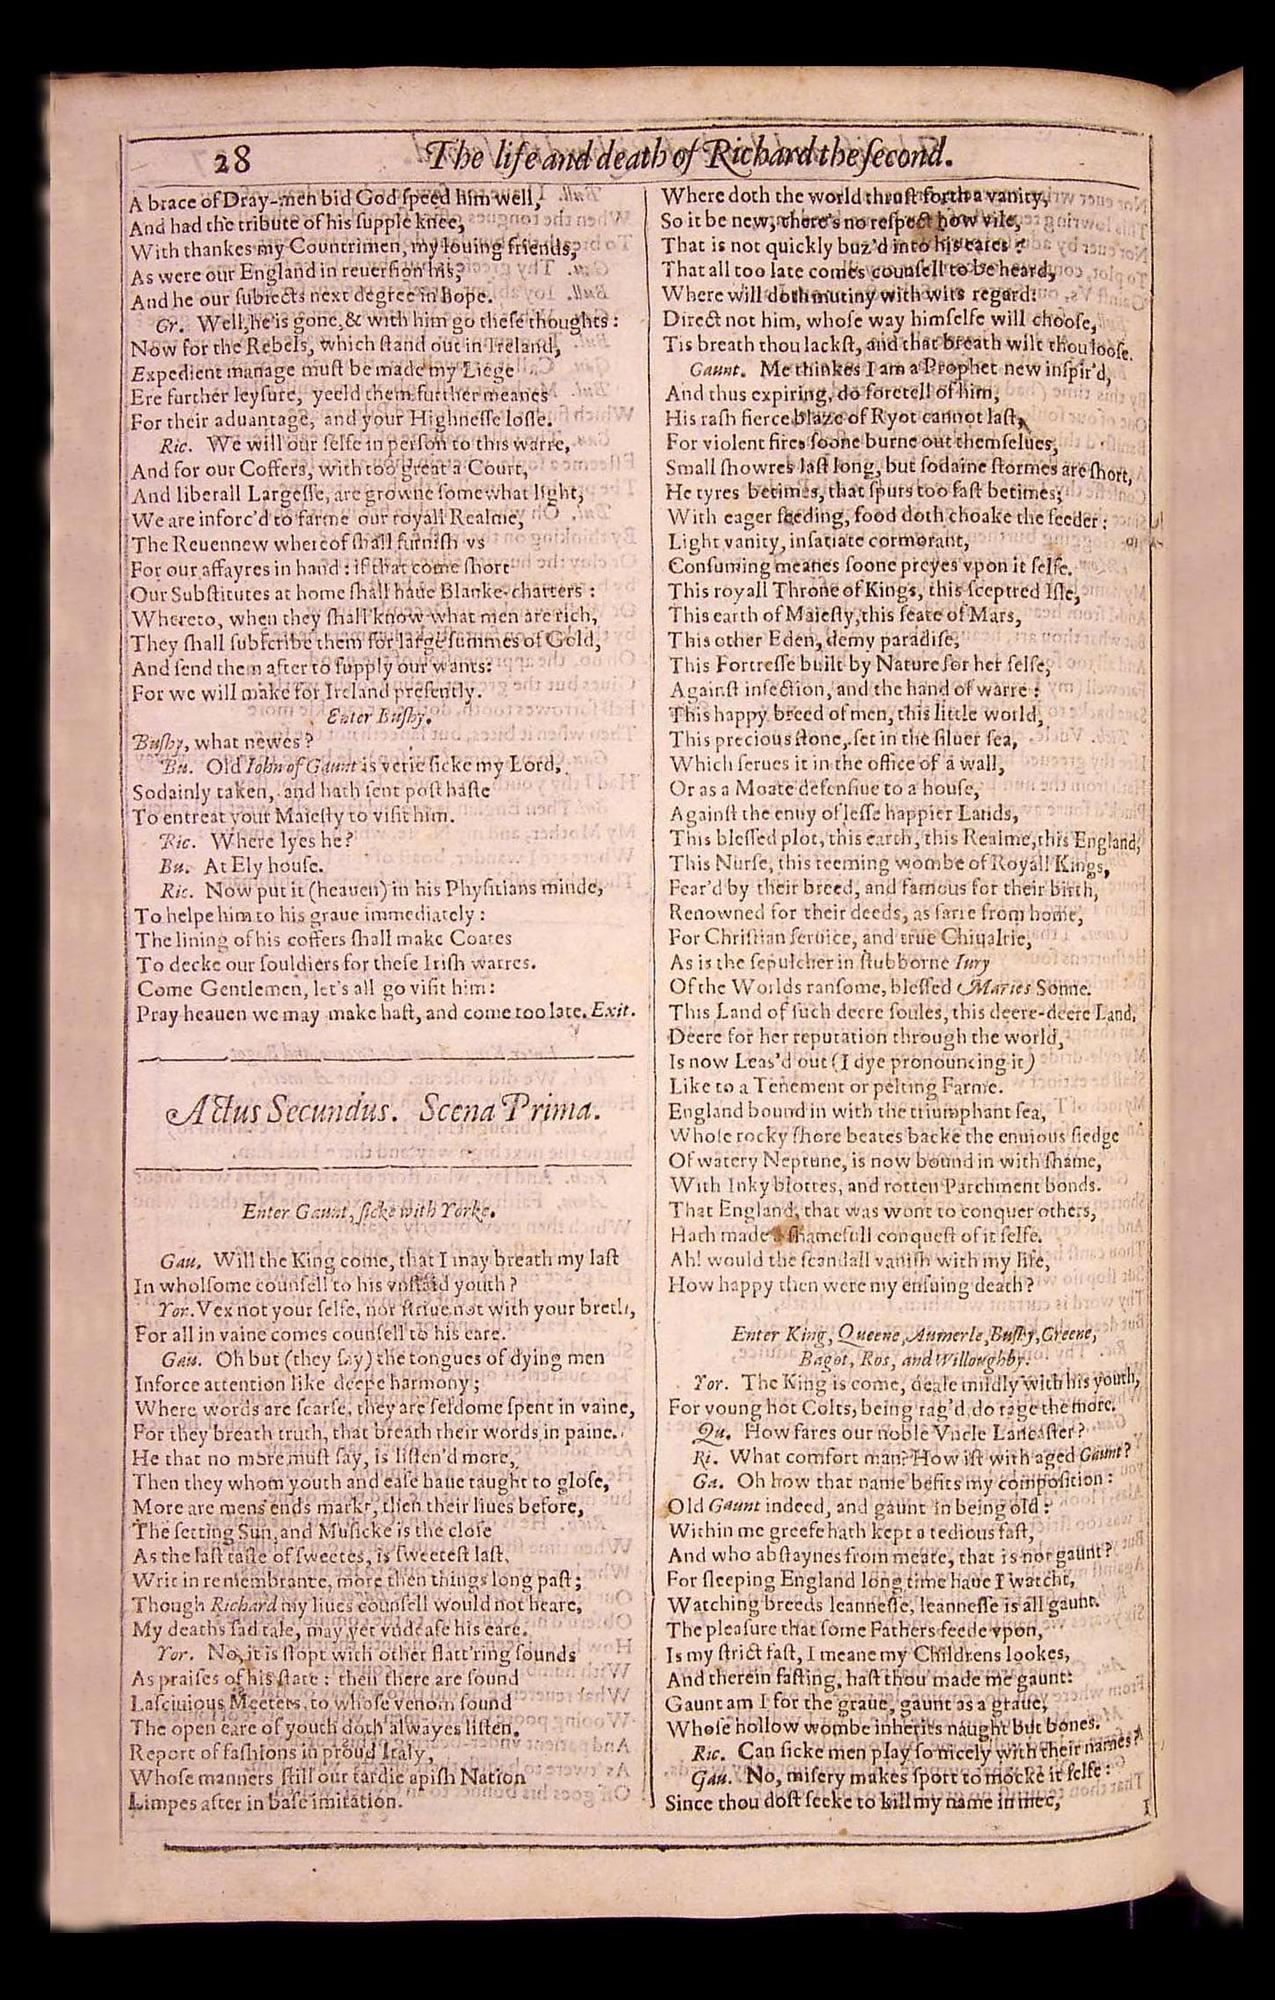 28 The life and death of Richard the ſecond.
A brace of Dray-men bid God ſpeed him well,
And had the tribute of his ſupple knee,
With thankes my Countrimen, my louing friends,
As were our England in reuerſion his,
And he our ſubiects next degree in hope.
Gr. Well, he is gone, & with him go theſe thoughts:
Now for the Rebels, which ſtand out in Ireland,
Expedient manage muſt be made my Liege
Ere further leyſure, yeeld them further meanes
For their aduantage, and your Highneſſe loſſe.
Ric. We will our ſelfe in perſon to this warre,
And for our Coffers, with too great a Court,
And liberall Largeſſe, are growne ſomewhat light,
We are inforc'd to farme our royall Realme,
The Reuennew whereof ſhall furniſh vs
For our affayres in hand: if that come ſhort
Our Subſtitutes at home ſhall haue Blanke-charters:
Whereto, when they ſhall know what men are rich,
They ſhall ſubſcribe them for large ſummes of Gold,
And ſend them after to ſupply our wants:
For we will make for Ireland preſently.
Enter Buſhy.
Buſhy, what newes?
Bu. Old Iohn of Gaunt is verie ſicke my Lord,
Sodainly taken, and hath ſent poſt haſte
To entreat your Maieſty to viſit him.
Ric. Where lyes he?
Bu. At Ely houſe.
Ric. Now put it (heauen) in his Phyſitians minde,
To helpe him to his graue immediately:
The lining of his coffers ſhall make Coates
To decke our ſouldiers for theſe Iriſh warres.
Come Gentlemen, let's all go viſit him:
Pray heauen we may make haſt, and come too late. Exit.
Actus Secundus. Scena Prima.
Enter Gaunt, ſicke with Yorke.
Gau. Will the King come, that I may breath my laſt
In wholſome counſell to his vnſtaid youth?
Yor. Vex not your ſelfe, nor ſtriue not with your breth,
For all in vaine comes counſell to his eare.
Gau. Oh but (they ſay) the tongues of dying men
Inforce attention like deepe harmony;
Where words are ſcarſe, they are ſeldome ſpent in vaine,
For they breath truth, that breath their words in paine.
He that no more muſt ſay, is liſten'd more,
Then they whom youth and eaſe haue taught to gloſe,
More are mens ends markt, then their liues before,
The ſetting Sun, and Muſicke is the cloſe
As the laſt taſte of ſweetes, is ſweeteſt laſt,
Writ in remembrance, more then things long paſt;
Though Richard my liues counſell would not heare,
My deaths ſad tale, may yet vndeafe his eare.
Yor. No, it is ſtopt with other flatt'ring ſounds
As praiſes of his ſtate: then there are ſound
Laſciuious Meeters, to whoſe venom ſound
The open eare of youth doth alwayes liſten.
Report of faſhions in proud Italy,
Whoſe manners ſtill our tardie apiſh Nation
Limpes after in baſe imitation.
Where doth the world thruſt forth a vanity,
So it be new, there's no reſpect how vile,
That is not quickly buz'd into his eares?
That all too late comes counſell to be heard,
Where will doth mutiny with wits regard:
Direct not him, whoſe way himſelfe will chooſe,
Tis breath thou lackſt, and that breath wilt thou looſe.
Gaunt. Me thinkes I am a Prophet new inſpir'd,
And thus expiring, do foretell of him,
His raſh fierce blaze of Ryot cannot laſt,
For violent fires ſoone burne out themſelues,
Small ſhowres laſt long, but ſodaine ſtormes are ſhort,
He tyres betimes, that ſpurs too faſt betimes;
With eager feeding, food doth choake the feeder:
Light vanity, inſatiate cormorant,
Conſuming meanes ſoone preyes vpon it ſelfe.
This royall Throne of Kings, this ſceptred Iſle,
This earth of Maieſty, this ſeate of Mars,
This other Eden, demy paradiſe,
This Fortreſſe built by Nature for her ſelfe,
Againſt infection, and the hand of warre:
This happy breed of men, this little world,
This precious ſtone, ſet in the ſiluer ſea,
Which ſerues it in the office of a wall,
Or as a Moate defenſiue to a houſe,
Againſt the enuy of leſſe happier Lands,
This bleſſed plot, this earth, this Realme, this England,
This Nurſe, this teeming wombe of Royall Kings,
Fear'd by their breed, and famous for their birth,
Renowned for their deeds, as farre from home,
For Chriſtian ſeruice, and true Chiualrie,
As is the ſepulcher in ſtubborne Iury
Of the Worlds ranſome, bleſſed Maries Sonne.
This Land of ſuch deere ſoules, this deere-deere Land,
Deere for her reputation through the world,
Is now Leas'd out (I dye pronouncing it)
Like to a Tenement or pelting Farme.
England bound in with the triumphant ſea,
Whoſe rocky ſhore beates backe the enuious ſiedge
Of watery Neptune, is now bound in with ſhame,
With Inky blottes, and rotten Parchment bonds.
That England, that was wont to conquer others,
Hath made a ſhamefull conqueſt of it ſelfe.
Ah! would the ſcandall vaniſh with my life,
How happy then were my enſuing death?
Enter King, Queene, Aumerle, Buſhy, Greene,
Bagot, Ros, and Willoughby.
Yor. The King is come, deale mildly with his youth,
For young hot Colts, being rag'd, do rage the more.
Qu. How fares our noble Vncle Lancaſter?
Ri. What comfort man? How iſt with aged Gaunt?
Ga. Oh how that name befits my compoſition:
Old Gaunt indeed, and gaunt in being old:
Within me greefe hath kept a tedious faſt,
And who abſtaynes from meate, that is not gaunt?
For ſleeping England long time haue I watcht,
Watching breeds leanneſſe, leanneſſe is all gaunt.
The pleaſure that ſome Fathers feede vpon,
Is my ſtrict faſt, I meane my Childrens lookes,
And therein faſting, haſt thou made me gaunt:
Gaunt am I for the graue, gaunt as a graue,
Whoſe hollow wombe inherits naught but bones.
Ric. Can ſicke men play ſo nicely with their names?
Gau. No, miſery makes ſport to mocke it ſelfe:
Since thou doſt ſeeke to kill my name in mee,
I